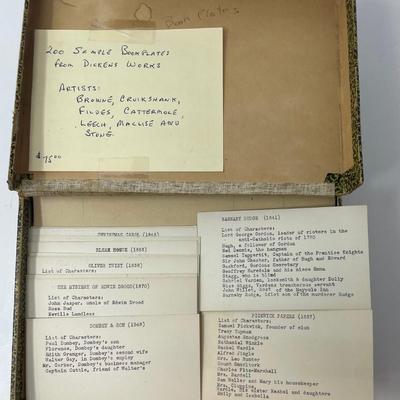 Book Plates
200 SAMPLE BOOKPLATES
FROM DICKENS WORKS
ARTISTS:
BROWNE, CRUIKSHANK,
FILDES, CATTERMOLE,
LEECH, MACLISE AND
STONE.
$75.00
CHRISTMAS CAROL (1843)
BLEAK HOUSE (1853)
OLIVER TWIST (1838)
List of Characters:
THE MYSTERY OF EDWIN DROOD(1870)
List of Characters:
John Jasper, uncle of Edwin Drood
Rosa Bud
Neville Landless
DOMBEY & SON (1848)
List of Characters:
Paul Dombey, Dombey's son
Florence, Dombey's daughter
Edith Granger, Dombey's second wife
Walter Gay, in Dombey's employ
Mr. Carker, Dombey's business manager
Captain Cuttle, friend of Walter's
BARNABY RUDGE (1841)
List of Characters:
Lord George Gordon, leader of rioters in the
anti-Catholic riots of 1780
Hugh, a follower of Gordon
Ned Dennis, the hangman
Samuel Tappertit, Captain of the Prentice Knights
Sir John Chester, father of Hugh and Edward
Gashford, Gordons Secretary
Geoffrey Haredale and his niece Emma
Stagg, who is blind
Gabriel Varden, locksmith & daughter Dolly
Miss Miggs, Vardens treacherous servant
John Willet, host of the Maypole Inn
Barnaby Rudge, idiot son of the murderer Rudge
PICKWICK PAPERS (1837)
List of Characters:
Samuel Pickwick, founder of club
Tracy Tupman
Augustus Snodgrass
Nathaniel Winkle
Rachel Wardle
Alfred Jingle
Mrs. Leo Hunter
Count Smorltork
Charles Fitz-Marshall
Mrs. Bardell
Sam Weller and Mary his housekeeper
Mrs. Cluppins
Wardle, his sister Rachel and daughters
Emily and Isabella